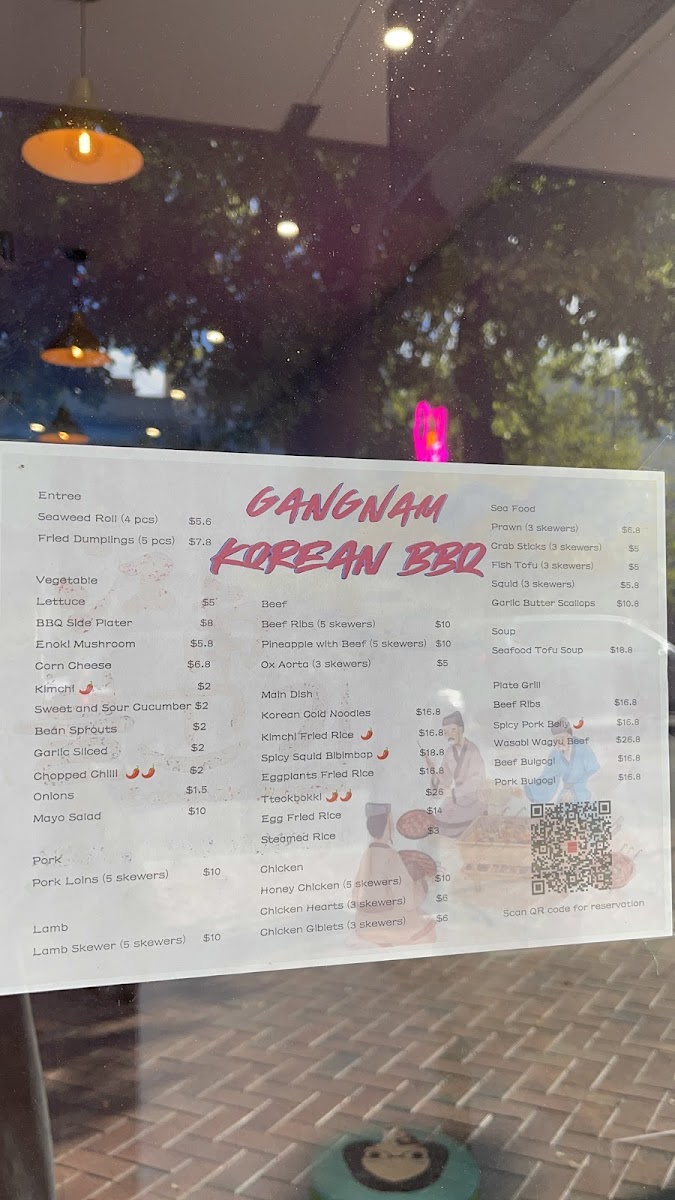 GANGNAM
KOREAN BBQ
Entree
Seaweed Roll (4 pcs) $5.6
Fried Dumplings (5 pcs) $7.8
Vegetable
Lettuce $5
BBQ Side Plater $8
Enoki Mushroom $5.8
Corn Cheese $6.8
Kimchi 🌶️ $2
Sweet and Sour Cucumber $2
Bean Sprouts $2
Garlic Sliced $2
Chopped Chilli 🌶️🌶️ $2
Onions $1.5
Mayo Salad $10
Pork
Pork Loins (5 skewers) $10
Lamb
Lamb Skewer (5 skewers) $10
Beef
Beef Ribs (5 skewers) $10
Pineapple with Beef (5 skewers) $10
Ox Aorta (3 skewers) $5
Main Dish
Korean Cold Noodles $16.8
Kimchi Fried Rice 🌶️ $16.8
Spicy Squid Bibimbap 🌶️ $18.8
Eggplants Fried Rice $16.8
Tteokbokki 🌶️🌶️ $26
Egg Fried Rice $14
Steamed Rice $3
Chicken
Honey Chicken (5 skewers) $10
Chicken Hearts (3 skewers) $6
Chicken Giblets (3 skewers) $6
Sea Food
Prawn (3 skewers) $6.8
Crab Sticks (3 skewers) $5
Fish Tofu (3 skewers) $5
Squid (3 skewers) $5.8
Garlic Butter Scallops $10.8
Soup
Seafood Tofu Soup $18.8
Plate Grill
Beef Ribs $16.8
Spicy Pork Belly 🌶️ $16.8
Wasabi Wagyu Beef $26.8
Beef Bulgogi $16.8
Pork Bulgogi $16.8
Scan QR code for reservation